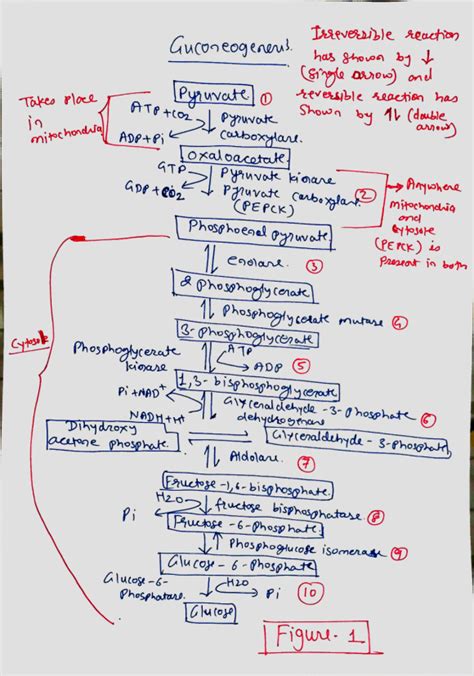 Guconeogenesis.
Irreversible reaction
has shown by ↓
(single arrow) and
reversible reaction has
Shown by ⇅ (double
arrow)
Takes place
in
mitochondria
Pyruvate ①
ATP+CO2
Pyruvate
carboxylase.
ADP+Pi
Oxaloacetate
GTP
Pyruvate kinase
GDP+CO2
Pyruvate carboxylase ②
(PEPCK)
Anywhere
mitochondria
and
cytosole
(PEPCK) is
Present in both
Phosphoenol pyruvate
enolase. ③
2 Phosphoglycerate
Phosphoglycerate mutase ④
3-phosphoglycerate
Cytosol
Phosphoglycerate
kinase
ATP
ADP ⑤
1,3-bisphosphoglycerate
Pi+NAD+
Glyceraldehyde-3-phosphate ⑥
dehydrogenase
NADH+H+
Dihydroxy
acetone phosphate.
Glyceraldehyde-3-Phosphate
Aldolase. ⑦
Fructose-1,6-bisphosphate.
H2O
fructose bisphosphatase ⑧
Pi
Fructose-6-Phosphate
Phosphoglucose isomerase ⑨
Glucose-6-Phosphate
Glucose-6-
Phosphatase.
H2O
Pi ⑩
Glucose
Figure-1